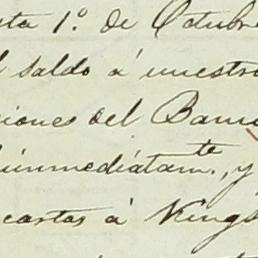 sta 1.º de Octubre
l saldo á nuestro
iones del Banco
inmediatam.te, y
cartas á Kings